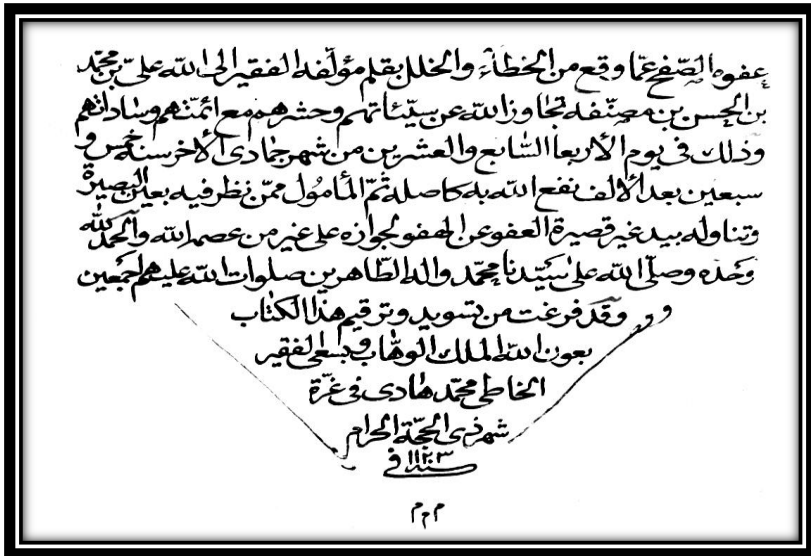 عفوه الصّفح عمّا وقع من الخطاء والخلل بقلم مؤلّفه الفقير الى الله علىّ بن محمّد
بن الحسن بن مصنّفه تجاوز الله عن سيّئاتهم وحشرهم مع ائمّتهم وساداتهم
وذلك فى يوم الأربعا السّابع والعشرين من شهر جمادى الأخر سنه خمس و
سبعين بعد الألف نفع الله به كاصله ثمّ المأمول ممّن نظر فيه بعين البصيرة
وتناوله بيد غير قصيرة العفو عن الهفو لجوازه على غير من عصم الله والحمد لله
وحده وصلّى الله على سيّدنا محمّد واله الطّاهرين صلوات الله عليهم اجمعين
وقد فرغت من تسويد وترقيم هذا الكتاب
بعون الله الملك الوهّاب وبسعى الفقير
الخاطى محمّد هادى فى غرّة
شهر ذى الحجّة الحرام
فى سنة ١٢٠٣
م م م